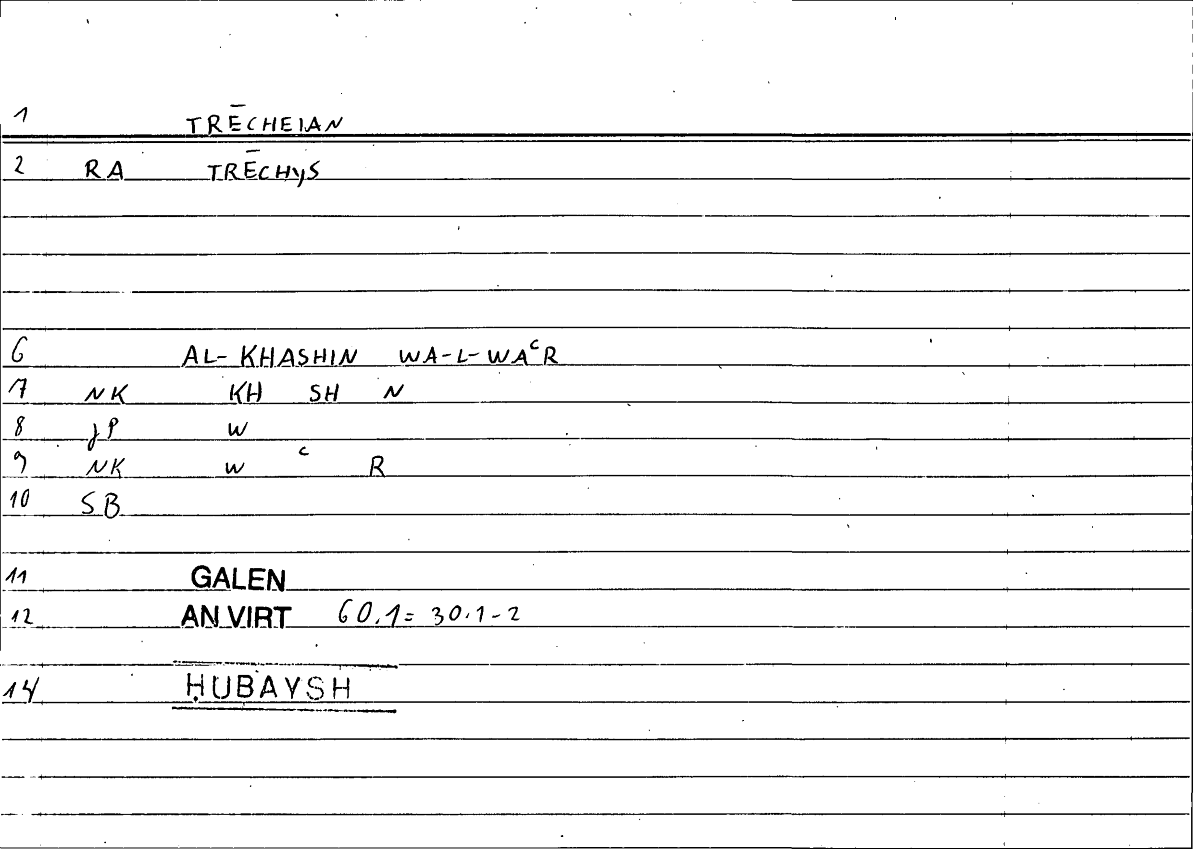 1 TRĒCHEIAN
2 RA TRĒCHYS
6 AL-KHASHIN WA-L-WAᶜR
7 NK KH SH N
8 JP W
9 NK W ᶜ R
10 SB
11 GALEN
12 AN VIRT 60.1= 30.1-2
14 ḤUBAYSH